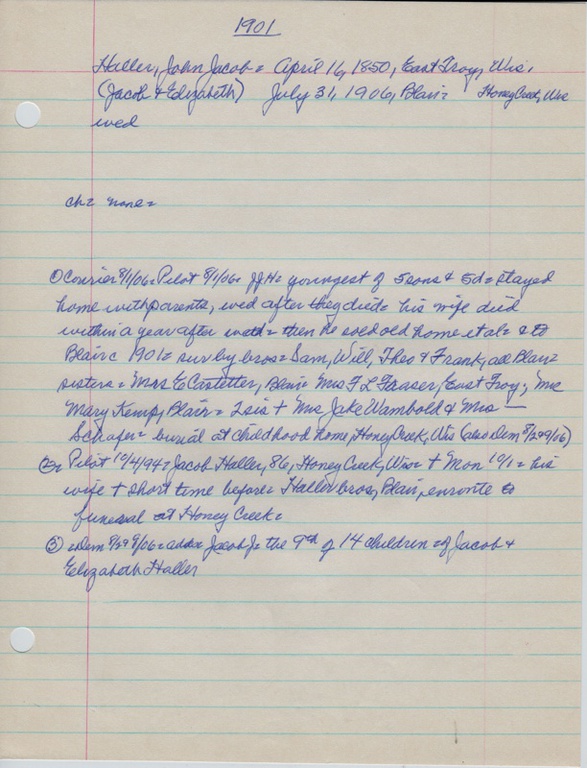 1901
Haller, John Jacob = April 16, 1850, East Troy, Wis.
(Jacob & Elizabeth) July 31, 1906, Blair = Honey Creek, Wis
wed
ch = none =
① Courier 8/1/06 = Pilot 8/1/06 = JJH = youngest of 5 sons & 5 d = stayed
home with parents, wed after they died = his wife died
within a year after wed = then he sold old home et al = & to
Blair c 1901 = surv by bros = Sam, Will, Theo & Frank, all Blair =
sisters = Mrs E Castetter, Blair = Mrs F L Fraser, East Troy; Mrs
Mary Kemp, Blair = 2 sis + Mrs Jake Wambold & Mrs —
Schafer = burial at childhood home, Honey Creek, Wis (also Dem 8/2 9/06)
② = Pilot 10/4/94 = Jacob Haller, 86, Honey Creek, Wis = + Mon 10/1 = his
wife + short time before = Haller bros, Blair, enroute to
funeral at Honey Creek =
③ = Dem 8/2 9/06 = adds Jacob J = the 9th of 14 children = of Jacob &
Elizabeth Haller